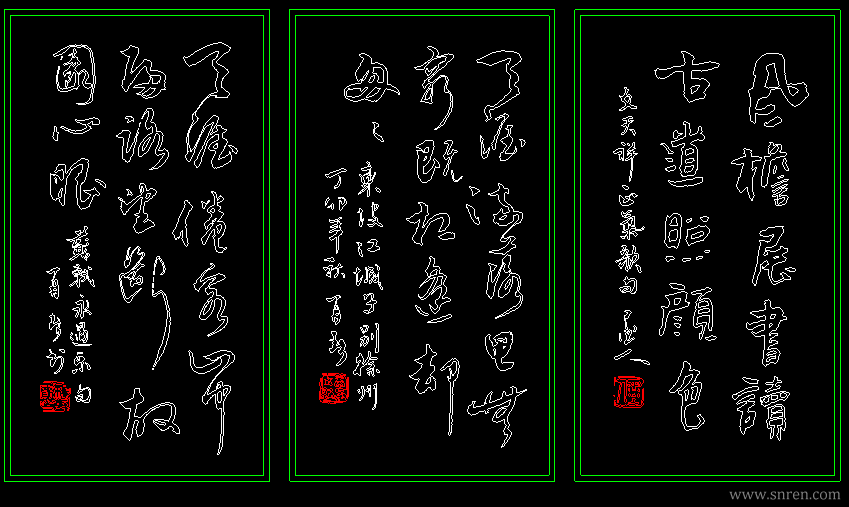 風檐展書讀
古道照顏色
文天祥正氣歌句
天涯流落思無
窮既相逢却
匆匆
東坡江城子别徐州
丁卯年秋
天涯倦客山中
歸路望斷故
園心眼
蘇軾永遇樂句
www.snren.com